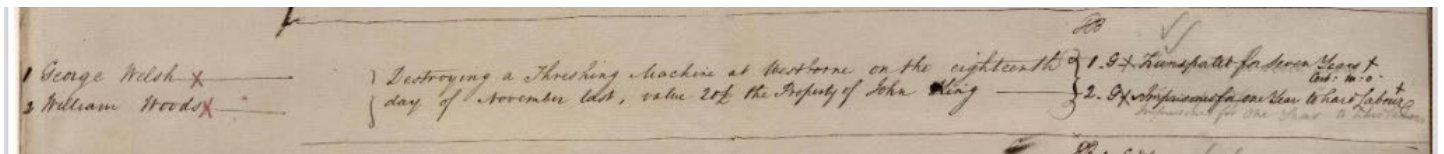 1 George Welsh x
2 William Woods x
Destroying a Threshing Machine at Westborne on the eighteenth
day of November last, value 20£ the Property of John King
1. G x Transported for Seven Years x
2. G x Imprisoned for one Year to hard Labour x
Imprisoned for One Year to Hard Labour